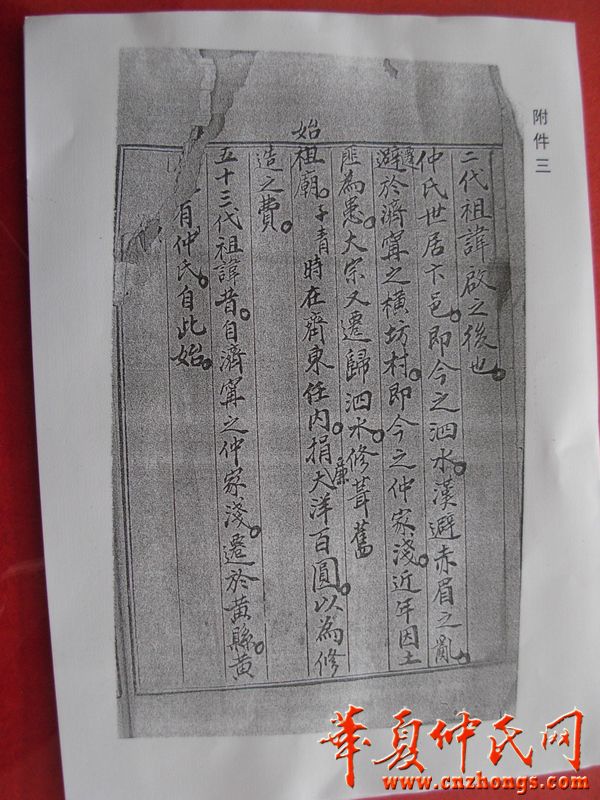 附件三
二代祖諱啟之後也。
仲氏世居卞邑。即今之泗水。漢避赤眉之亂。
遷避於濟寧之橫坊村。即今之仲家淺。近年因土
匪為患。大宗又遷歸泗水。修葺舊
始祖廟。子青時在齊東任内。捐廉大洋百圓。以為修
造之費。
五十三代祖諱昔。自濟寧之仲家淺。遷於黃縣。黃
有仲氏。自此始。
華夏仲氏网
www.cnzhongs.com